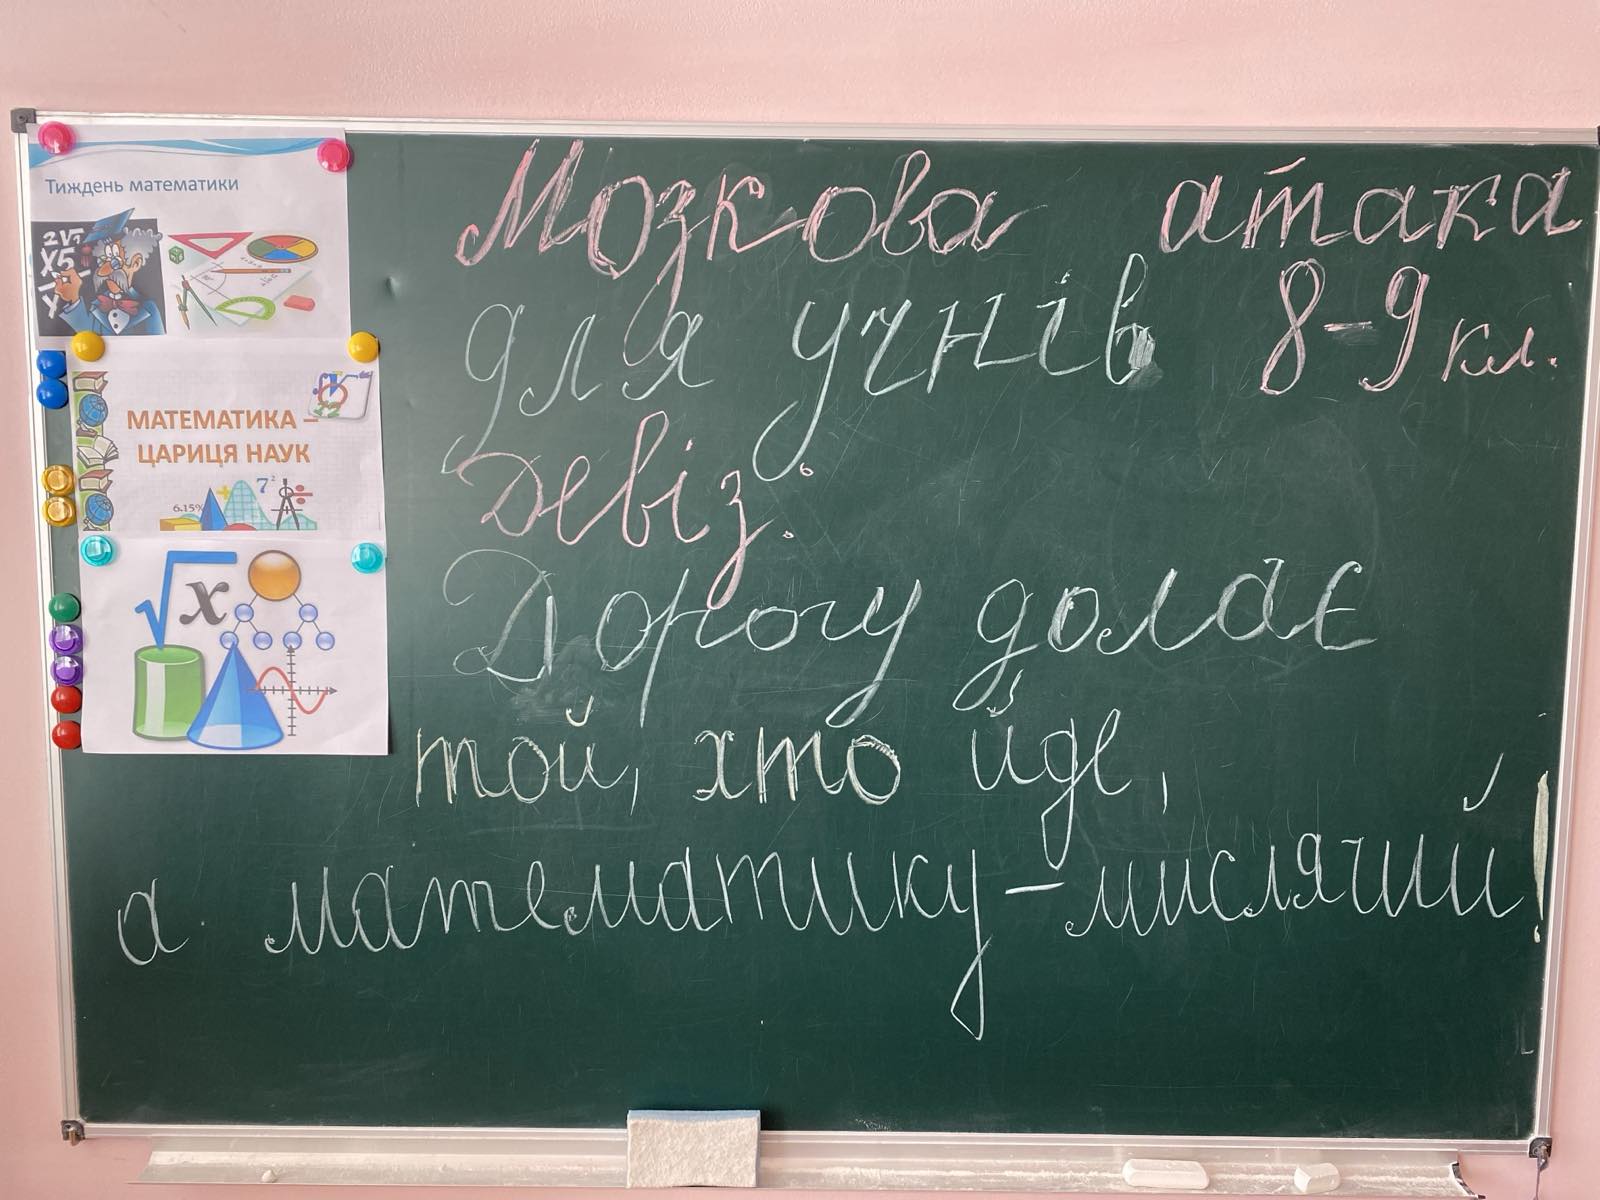 Тиждень математики
МАТЕМАТИКА –
ЦАРИЦЯ НАУК
6.15%
7²
√x
Мозкова атака
для учнів 8-9 кл.
Девіз:
Дорогу долає
той, хто йде,
а математику - мислячий!